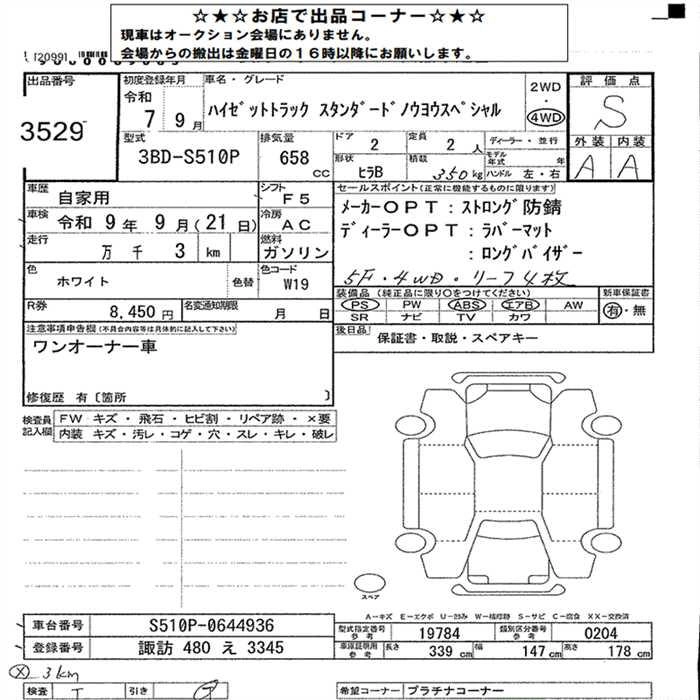 ☆★☆お店で出品コーナー☆★☆
現車はオークション会場にありません。
会場からの搬出は金曜日の16時以降にお願いします。
出品番号
3529
初度登録年月
令和
7 9月
車名・グレード
ハイゼットトラック スタンダードノウヨウスペシャル
2WD
・
4WD
評価点
S
外装 内装
A A
型式
3BD-S510P
排気量
658 CC
ドア
2
定員
2 人
形状
ヒラB
積載
350kg
ディーラー・並行
モデル年式 年
ハンドル 左・右
車歴
自家用
シフト
F5
車検 令和 9年 9月(21日)
冷房
AC
走行
万 千 3 km
燃料
ガソリン
色
ホワイト
色替
色コード
W19
R券
8,450円
名変通知期限
月 日
セールスポイント(正常に機能するものに限ります)
メーカーOPT:ストロング防錆
ディーラーOPT:ラバーマット
:ロングバイザー
5F・4WD・リーフ4枚
装備品(純正品に限り○をつけてください)
PS PW ABS エアB AW
SR ナビ TV カワ
新車保証書
有・無
後日品
保証書・取説・スペアキー
注意事項申告欄(不具合内容等は具体的に記入して下さい)
ワンオーナー車
修復歴 有〔箇所 〕
検査員記入欄
FW キズ・飛石・ヒビ割・リペア跡・×要
内装 キズ・汚レ・コゲ・穴・スレ・キレ・破レ
スペア
A-キズ E-エクボ U-凹み W-補修跡 S-サビ C-腐食 XX-交換済
車台番号
S510P-0644936
登録番号
諏訪 480 え 3345
型式指定番号 参考
19784
類別区分番号 参考
0204
車庫証明用 参考
長さ 339 cm
幅 147 cm
高さ 178 cm
Ⓧ 3km
検査
引き
希望コーナー
プラチナコーナー